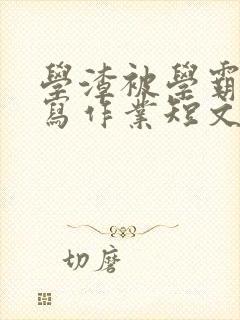 學渣被學霸
寫作業短文
切磨